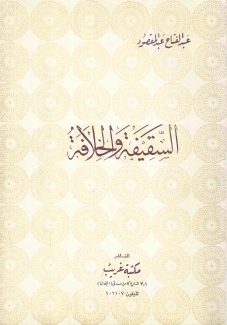 عبد الفتاح عبد المقصود
السقيفة والخلافة
الناشر
مكتبة غريب
تليفون ٩٠٢١٠٧